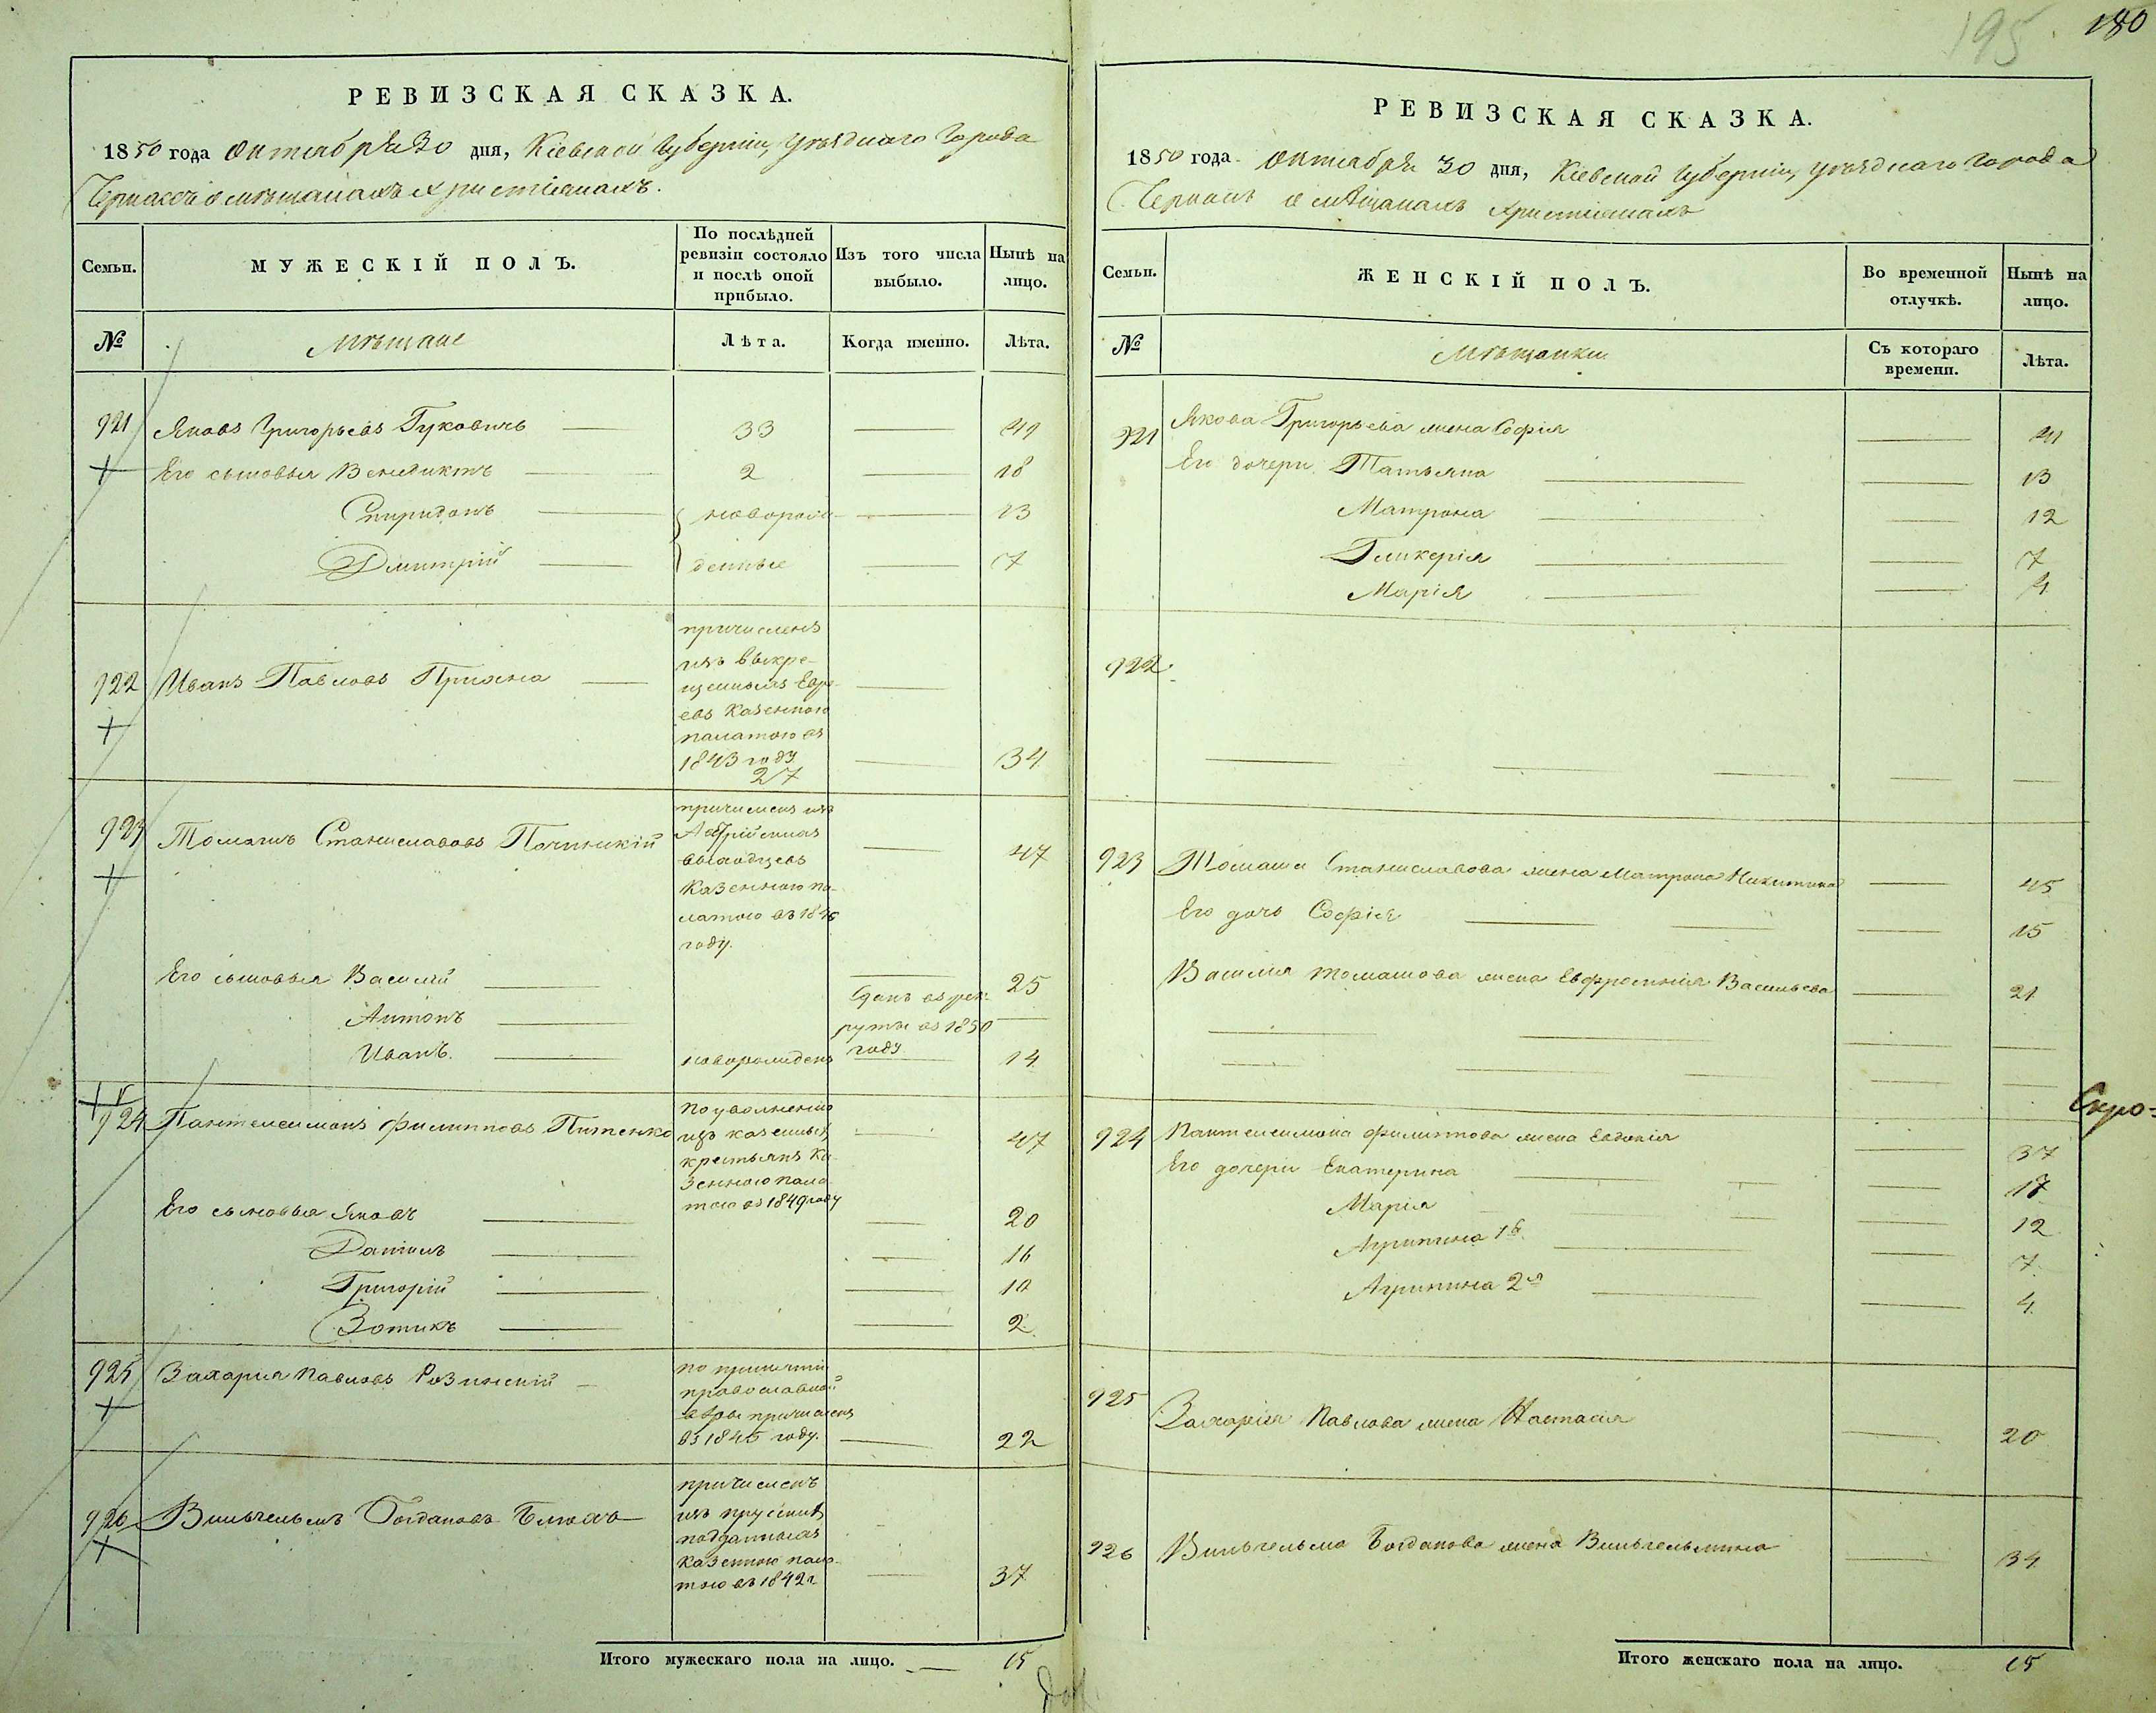 195. 180
РЕВИЗСКАЯ СКАЗКА.
1850 года Октября 30 дня, Кіевской Губерніи, уѣзднаго города
Черкасъ о мѣщанахъ христіянахъ.
Семьи.
МУЖЕСКІЙ ПОЛЪ.
По послѣдней
ревизіи состояло
и послѣ оной
прибыло.
Изъ того числа
выбыло.
Нынѣ на
лицо.
№
Мѣщане
Лѣта.
Когда именно.
Лѣта.
921 Яковъ Григорьевъ Гуковичъ 33 49
Его сыновья Венедиктъ 2 18
Спиридонъ новорож- 13
Дмитрій денные 7
причисленъ
изъ выкре-
щенныхъ Евре-
922 Иванъ Павловъ
евъ Казенною
палатою въ
1843 году 34
27
причисленъ изъ
923 Томашъ Станиславовъ Австрійскихъ 47
выходцевъ
Казенною па-
латою въ 1846
году.
Его сыновья Василій 25
Антонъ Сданъ въ рек-
руты въ 1850
году
Иванъ. новорожденъ 14
924 Пантелеимонъ Филиповъ Питенко 47
по увольненію
изъ казенныхъ
крестьянъ Ка-
зенною пала-
тою въ 1849 году
Его сыновья Яковъ 20
Даніилъ 16
Григорій 10
Зотикъ 2
925 Захарія Павловъ Розинскій
по принятіи
православной
вѣры причисленъ
въ 1845 году. 22
926 Вильгельмъ Богдановъ Блюхъ
причисленъ
изъ прускихъ
подданныхъ
Казенною пала-
тою въ 1842 г 37
Итого мужескаго пола на лицо. 15
РЕВИЗСКАЯ СКАЗКА.
1850 года Октября 30 дня, Кіевской Губерніи, уѣзднаго города
Черкасъ о мѣщанахъ христіянахъ
Семьи.
ЖЕНСКІЙ ПОЛЪ.
Во временной
отлучкѣ.
Нынѣ на
лицо.
№
Мѣщанки
Съ котораго
времени.
Лѣта.
921 Якова Григорьева жена Софія 41
Его дочери Татьяна 13
Матрона 12
Гликерія 7
Марія 4
922.
923 Томаша Станиславова жена Матрона Никитина 45
Его дочь Софія 15
Василія Томашова жена Евфросинія Васильева 21
924 Пантелеимона Филипова жена Евдокія 37
Его дочери Екатерина 17
Марія 12
Агрипина 1я 7
Агрипина 2я 4
925 Захарія Павлова жена Настасія 20
926 Вильгельма Богданова жена Вильгельмина 34
Итого женскаго пола на лицо. 15